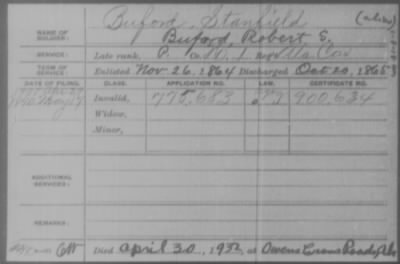 Buford, Stanfield (alias)
NAME OF SOLDIER: Buford, Robert S.
SERVICE: Late rank, P. Co. 1 Reg't Ala Cav
TERM OF SERVICE: Enlisted Nov 26, 1864 Discharged Oct 20, 1865
DATE OF FILING. CLASS. APPLICATION NO. LAW. CERTIFICATE NO.
Invalid, 775,683 900,634
Widow,
Minor,
ADDITIONAL SERVICES:
REMARKS:
Died April 30, 1932, at Owens Cross Roads, Ala